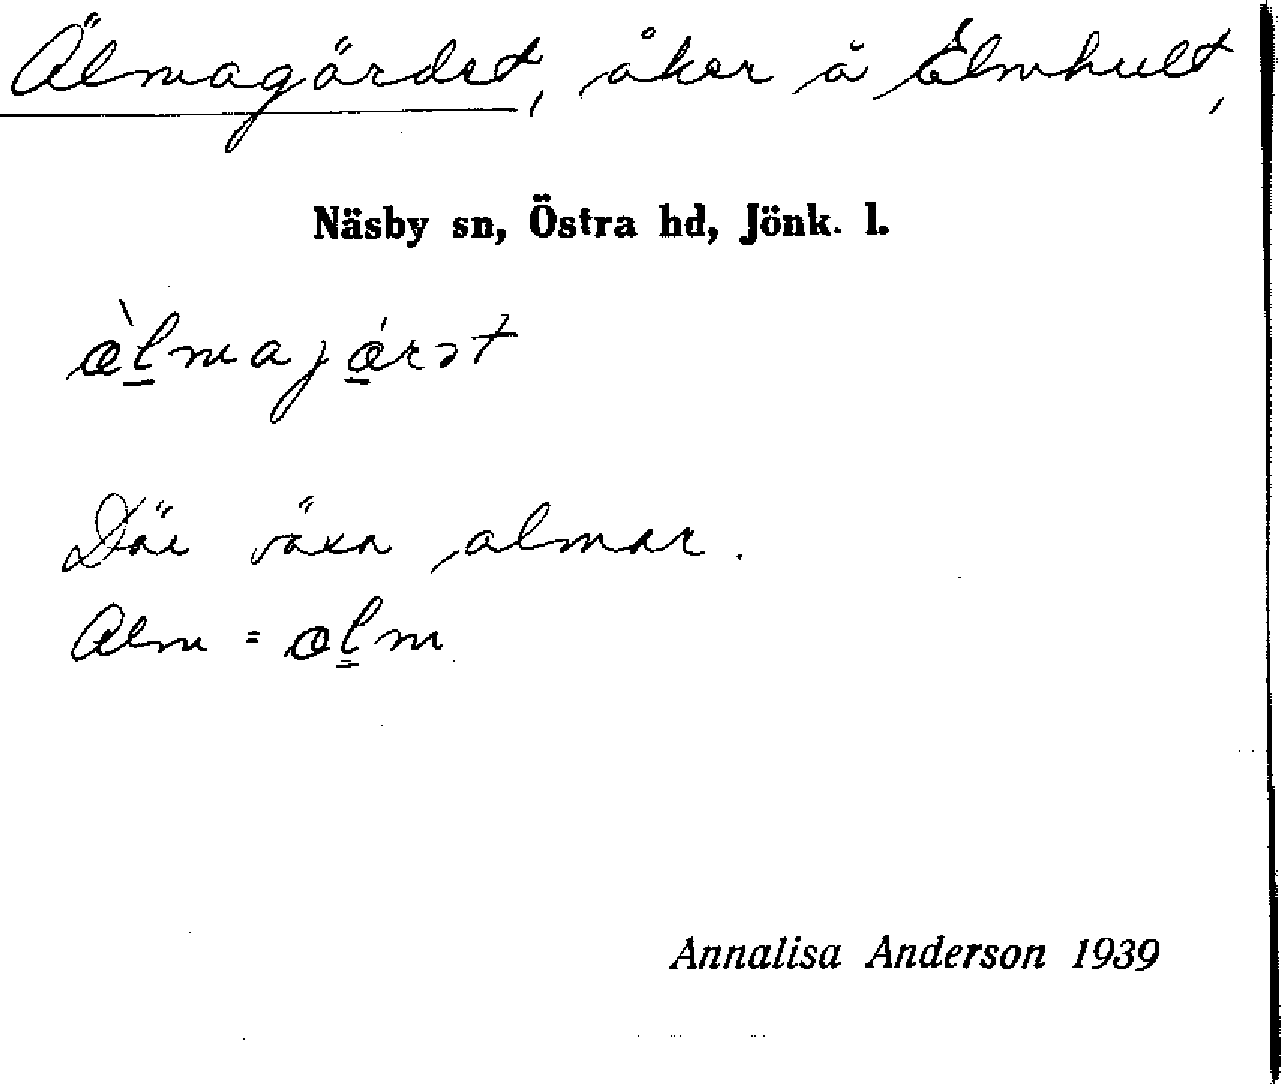 Älmagärdet, åker å Elmhult,
Näsby sn, Östra hd, Jönk. l.
æ̀l̲majǽ̲rət
Där växa almar.
Alm = æl̲m
Annalisa Anderson 1939